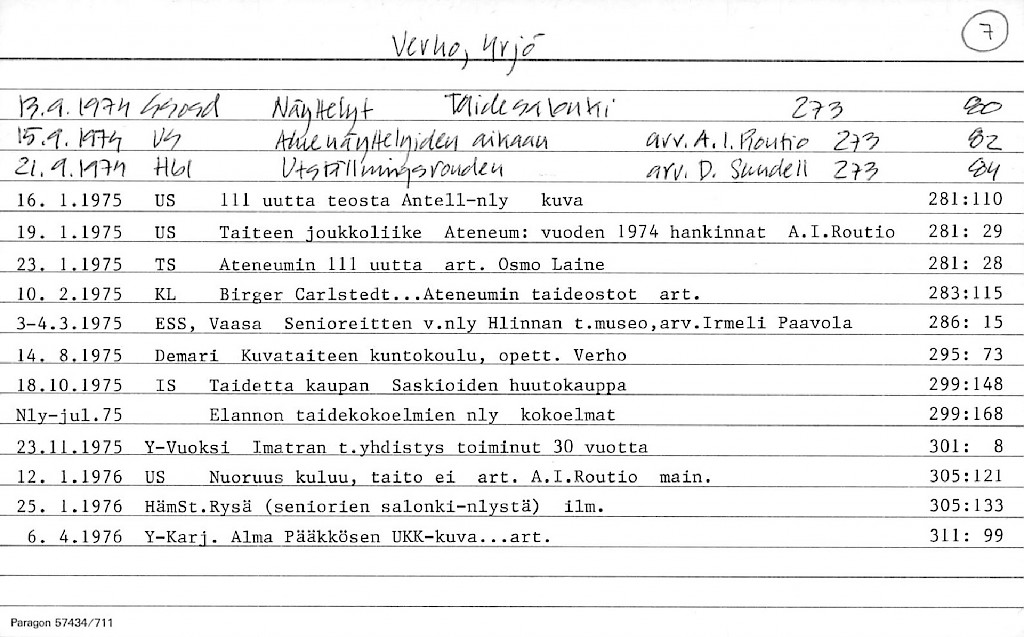 7
Verho, Yrjö
13.9.1974 Näyttelyt Taidesalonki 273 80
15.9.1974 US Aluenäyttelyiden aikaan arv. A.I. Routio 273 82
21.9.1974 Hbl Utställningsronden arv. D. Sundell 273 84
16. 1.1975 US 111 uutta teosta Antell-nly kuva 281:110
19. 1.1975 US Taiteen joukkoliike Ateneum: vuoden 1974 hankinnat A.I.Routio 281: 29
23. 1.1975 TS Ateneumin 111 uutta art. Osmo Laine 281: 28
10. 2.1975 KL Birger Carlstedt...Ateneumin taideostot art. 283:115
3-4.3.1975 ESS, Vaasa Senioreitten v.nly Hlinnan t.museo,arv.Irmeli Paavola 286: 15
14. 8.1975 Demari Kuvataiteen kuntokoulu, opett. Verho 295: 73
18.10.1975 IS Taidetta kaupan Saskioiden huutokauppa 299:148
Nly-jul.75 Elannon taidekokoelmien nly kokoelmat 299:168
23.11.1975 Y-Vuoksi Imatran t.yhdistys toiminut 30 vuotta 301: 8
12. 1.1976 US Nuoruus kuluu, taito ei art. A.I.Routio main. 305:121
25. 1.1976 HämSt.Rysä (seniorien salonki-nlystä) ilm. 305:133
6. 4.1976 Y-Karj. Alma Pääkkösen UKK-kuva...art. 311: 99
Paragon 57434/711